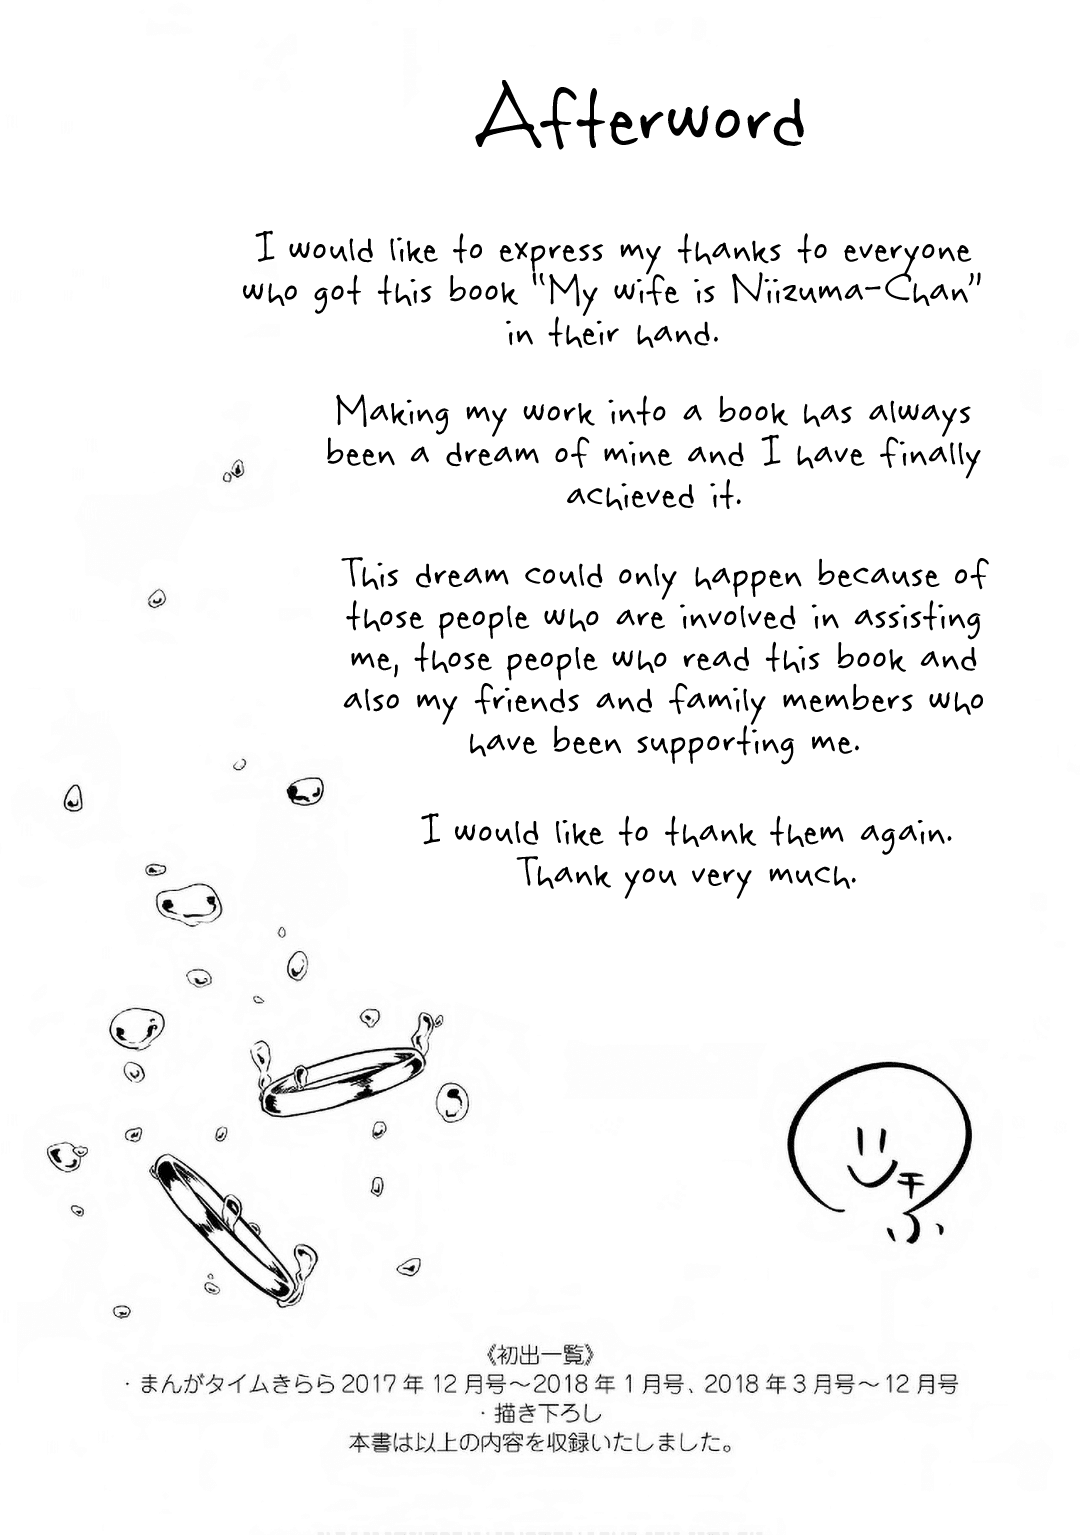 Afterword
I would like to express my thanks to everyone
who got this book "My wife is Niizuma-Chan"
in their hand.
Making my work into a book has always
been a dream of mine and I have finally
achieved it.
This dream could only happen because of
those people who are involved in assisting
me, those people who read this book and
also my friends and family members who
have been supporting me.
I would like to thank them again.
Thank you very much.
《初出一覧》
・まんがタイムきらら2017年12月号～2018年1月号、2018年3月号～12月号
・描き下ろし
本書は以上の内容を収録いたしました。